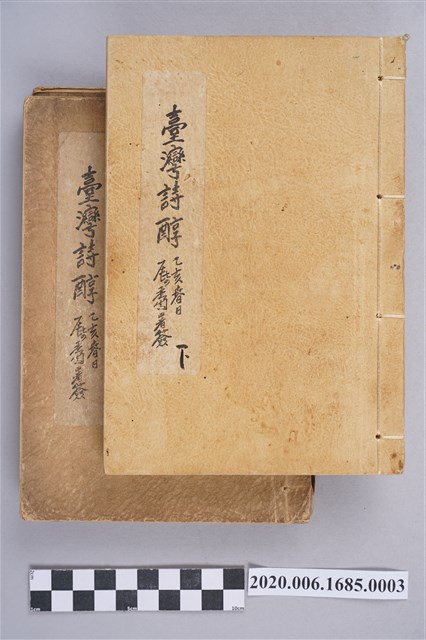 臺灣詩醇
乙亥春日
署簽
下
臺灣詩醇
乙亥春日
署簽
1cm 5cm 10cm
2020.006.1685.0003